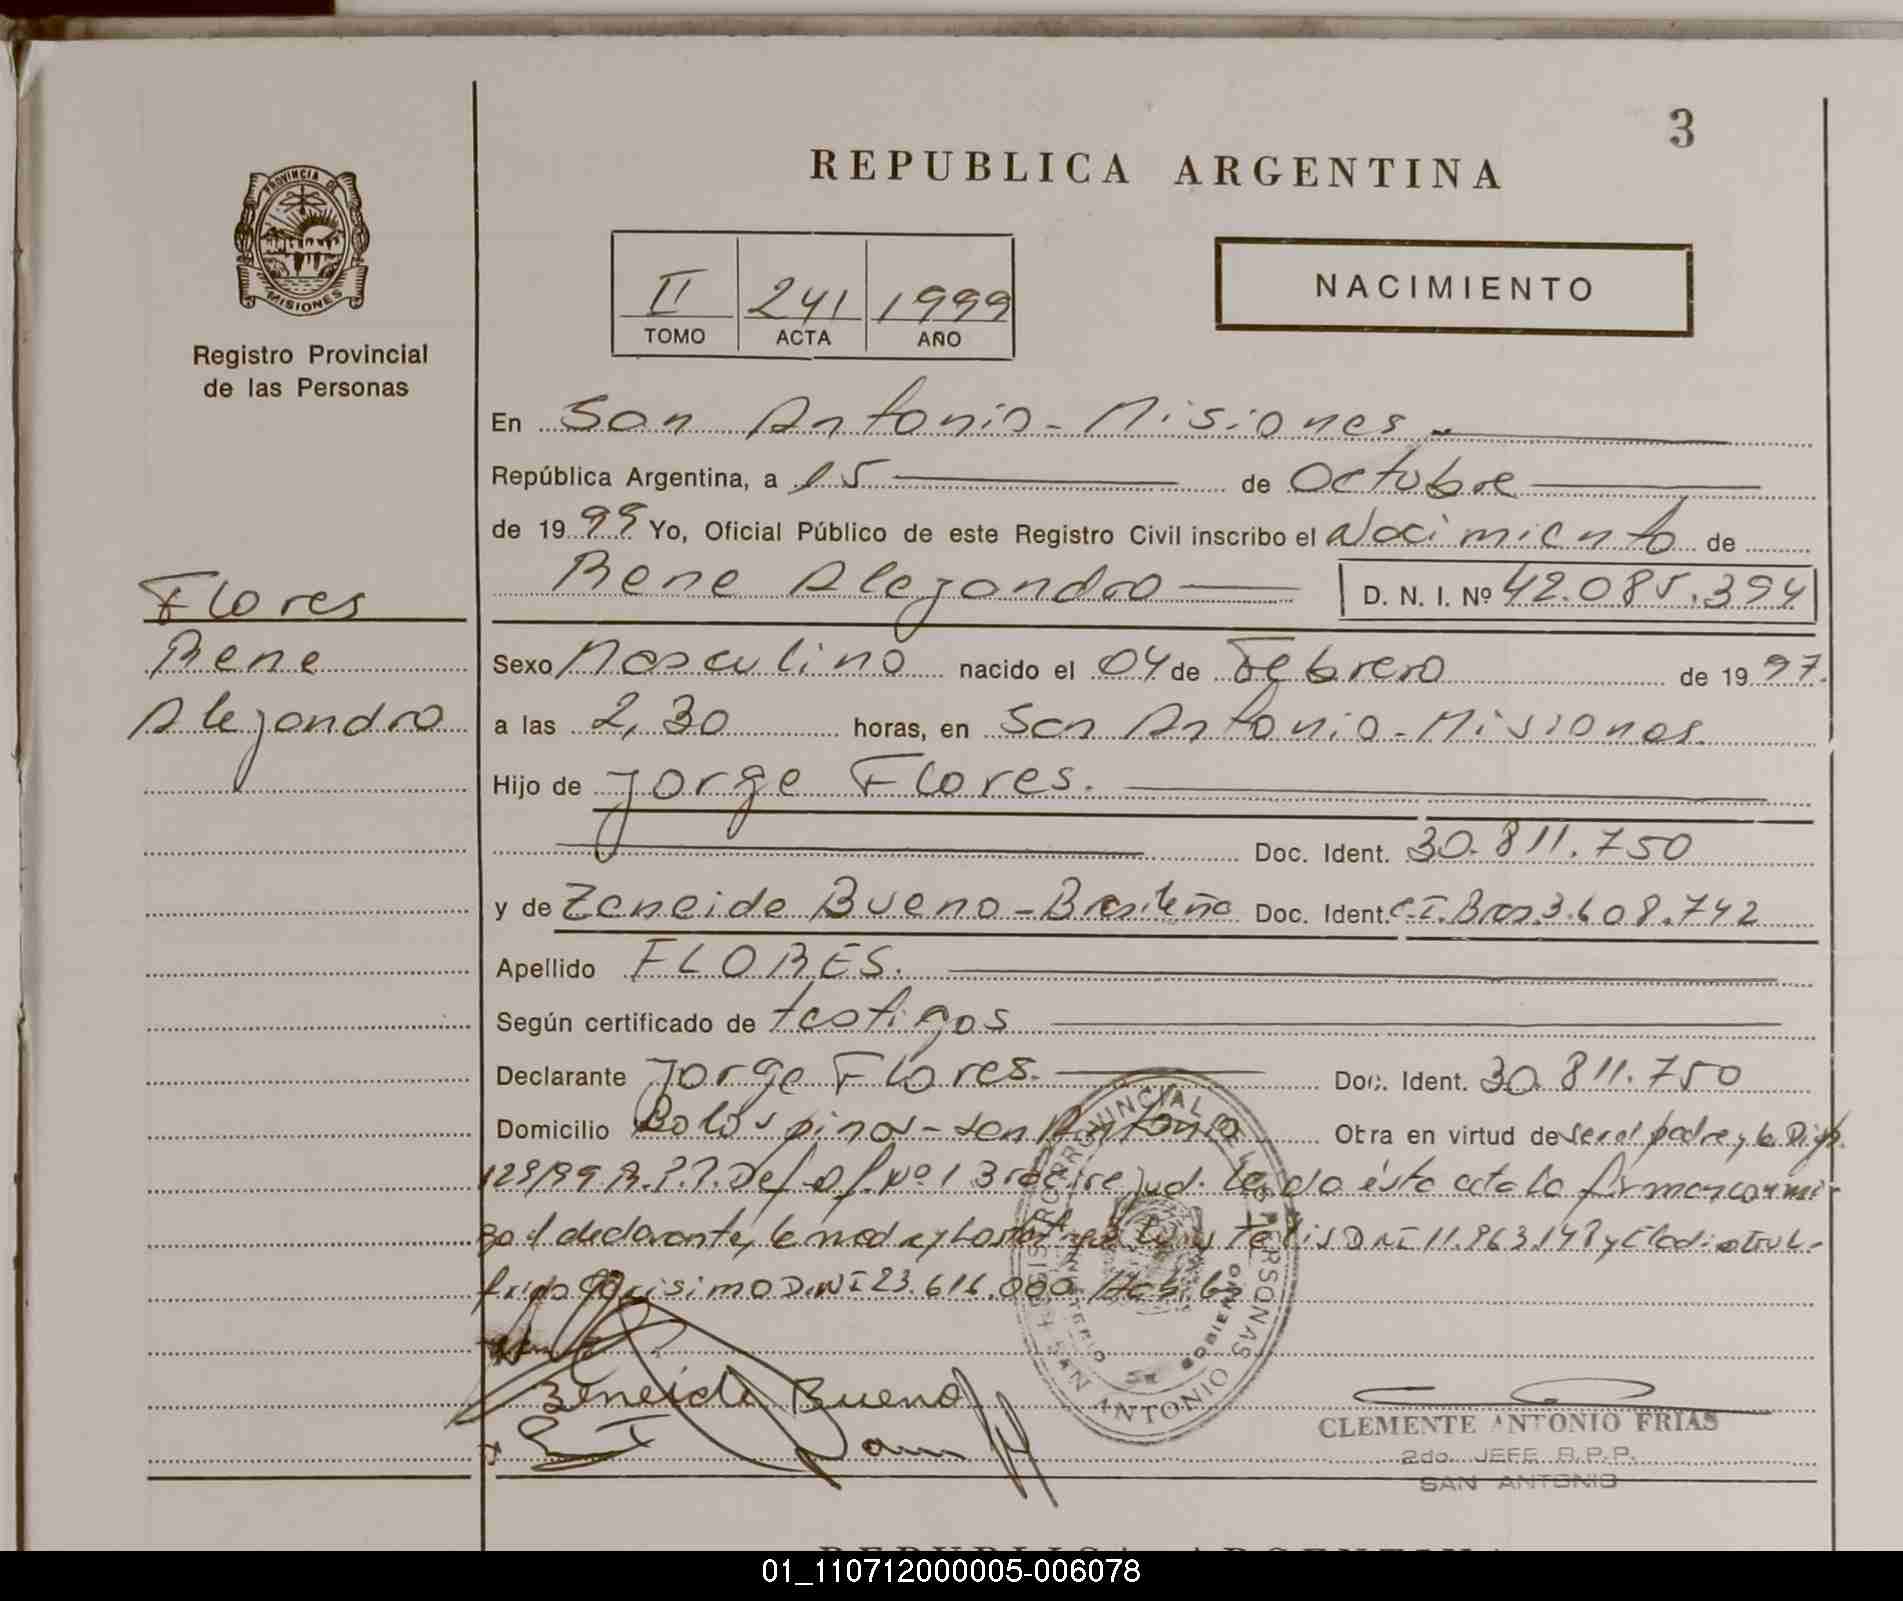 3
REPUBLICA ARGENTINA
PROVINCIA DE
MISIONES
Registro Provincial
de las Personas
II 241 1999
TOMO ACTA AÑO
NACIMIENTO
En San Antonio - Misiones -
República Argentina, a 15 de Octubre
de 1999 Yo, Oficial Público de este Registro Civil inscribo el Nacimiento de
Rene Alejandro D. N. I. Nº 42.085.394
Flores
Rene
Alejandro
Sexo Masculino nacido el 04 de Febrero de 1997.
a las 2,30 horas, en San Antonio - Misiones.
Hijo de Jorge Flores.
Doc. Ident. 30.811.750
y de Zeneide Bueno - Brasileña Doc. Ident. C.I. Bras. 3.608.742
Apellido FLORES.
Según certificado de testigos
Declarante Jorge Flores. Doc. Ident. 30.811.750
Domicilio pinos - San Antonio Obra en virtud de ser el padre y la Disp.
129/99 R.P.P. Def. Of. Nº 1 jud. Leida ésta acta la firman conmi-
go el declarante, la madre y los testigos DNI 11.963.148 y
DNI 23.616.000
Zeneide Bueno
REGISTRO PROVINCIAL DE LAS PERSONAS
MINISTERIO GOBIERNO
SAN ANTONIO
CLEMENTE ANTONIO FRIAS
2do. JEFE R.P.P.
SAN ANTONIO
REPUBLICA ARGENTINA
01_110712000005-006078